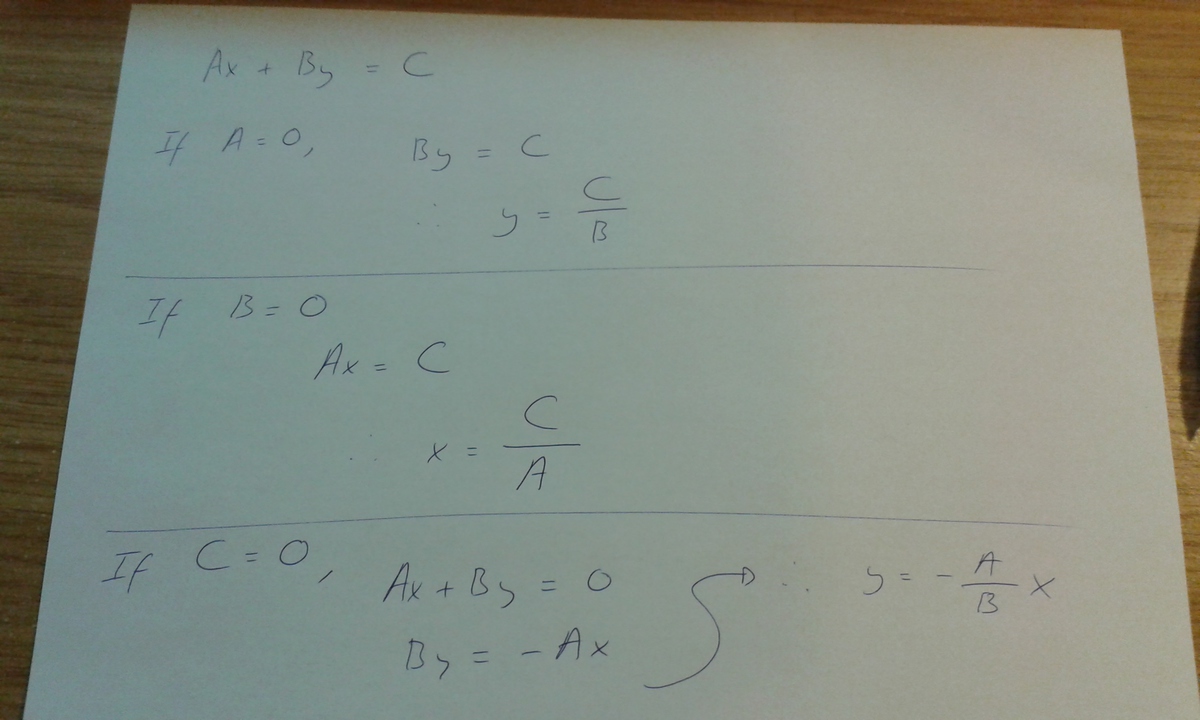 Ax + By = C
If A = 0, By = C
∴ y = C/B
If B = 0
Ax = C
∴ x = C/A
If C = 0, Ax + By = 0
By = -Ax
∴ y = -A/B x